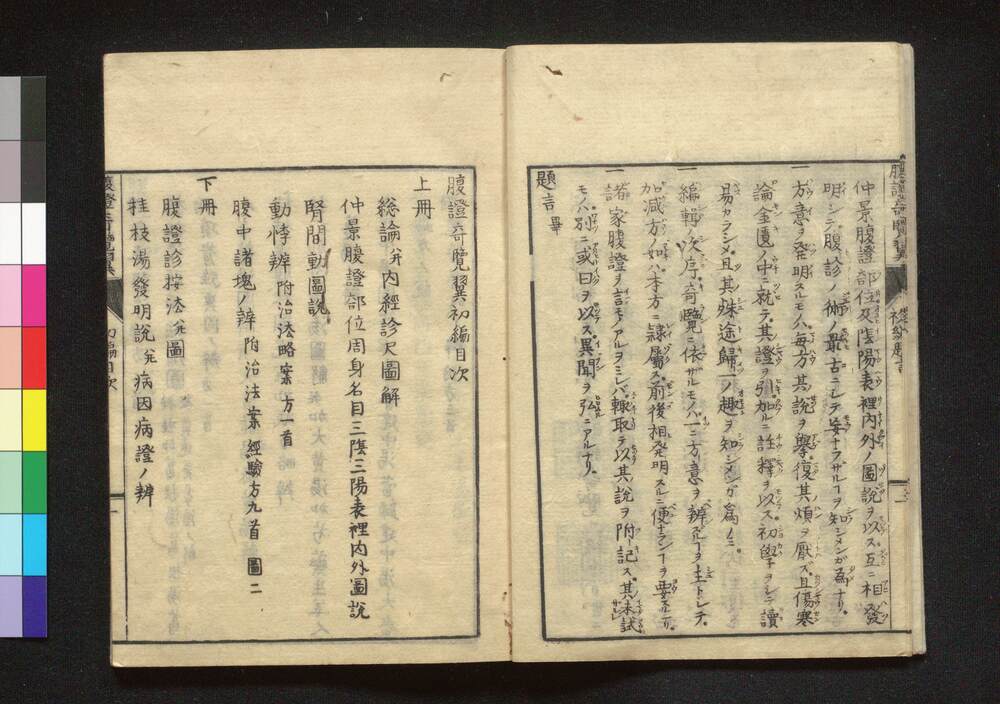 仲景腹證部位及陰陽表裡内外ノ圖說ヲ以ス互ニ相發
明シテ腹診ノ術ノ最古ニシテ妄ナラザルヿヲ知シメンガ為ナリ
一方意ヲ発明スルモノハ毎方其說ヲ擧復其煩ヲ厭ズ且傷寒
論金匱ノ中ニ就テ其證ヲ引加ルニ註釋ヲ以ス初學ヲシテ讀
易カラシメ且其殊途歸一ノ趣ヲ知シメンガ為ノミ
一編輯ノ次序奇覽ニ依ザルモノハ一ニ方意ヲ辨ズルヿヲ主トシテ
加減方ノ如ハ本方ニ隷屬ス前後相発明スルニ便ナランヿヲ要スルナリ
一諸家腹證ヲ言モノアルヲミレバ輙取テ以其說ヲ附記ス其未試
モノハ別ニ或曰ヲ以ス異聞ヲ弘ニアルナリ
題言畢
腹證奇覽翼初編目次
上冊
総論并內經診尺圖解
仲景腹證部位周身名目三陰三陽表裡内外圖說
腎間動圖說
動悸辨附治法略案方一首
腹中諸塊ノ辨附治法案經驗方九首圖二
下冊
腹證診按法并圖
桂枝湯發明說并病因病證ノ辨
腹證奇覽翼
初編目次